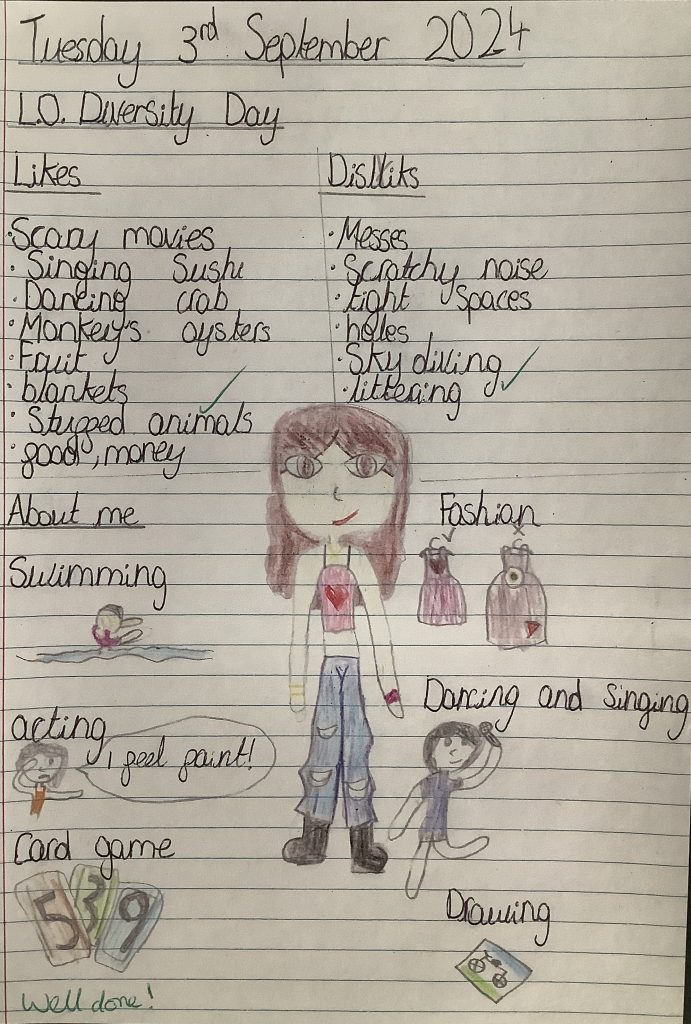 Tuesday 3rd September 2024
L.O. Diversity Day
Likes
· Scary movies
· Singing Sushi
· Dancing crab
· Monkey's oysters
· Fruit
· blankets
· Stuffed animals
· food, money
Dislliks
· Messes
· Scratchy noise
· tight spaces
· holes
· Sky diving
· littering
About me
Swimming
acting
I feel faint!
Card game
5 3 9
Fashion
Dancing and singing
Drawing
Well done!